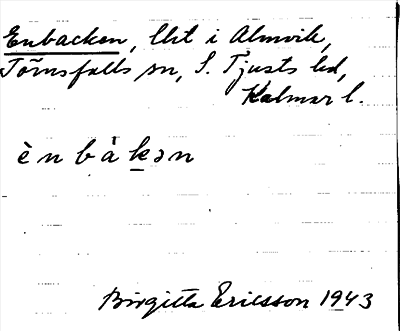 Enbacken, lht i Almvik,
Törnsfalls sn, S. Tjusts hd,
Kalmar l.
è n b à k ə n
Birgitta Ericsson 1943